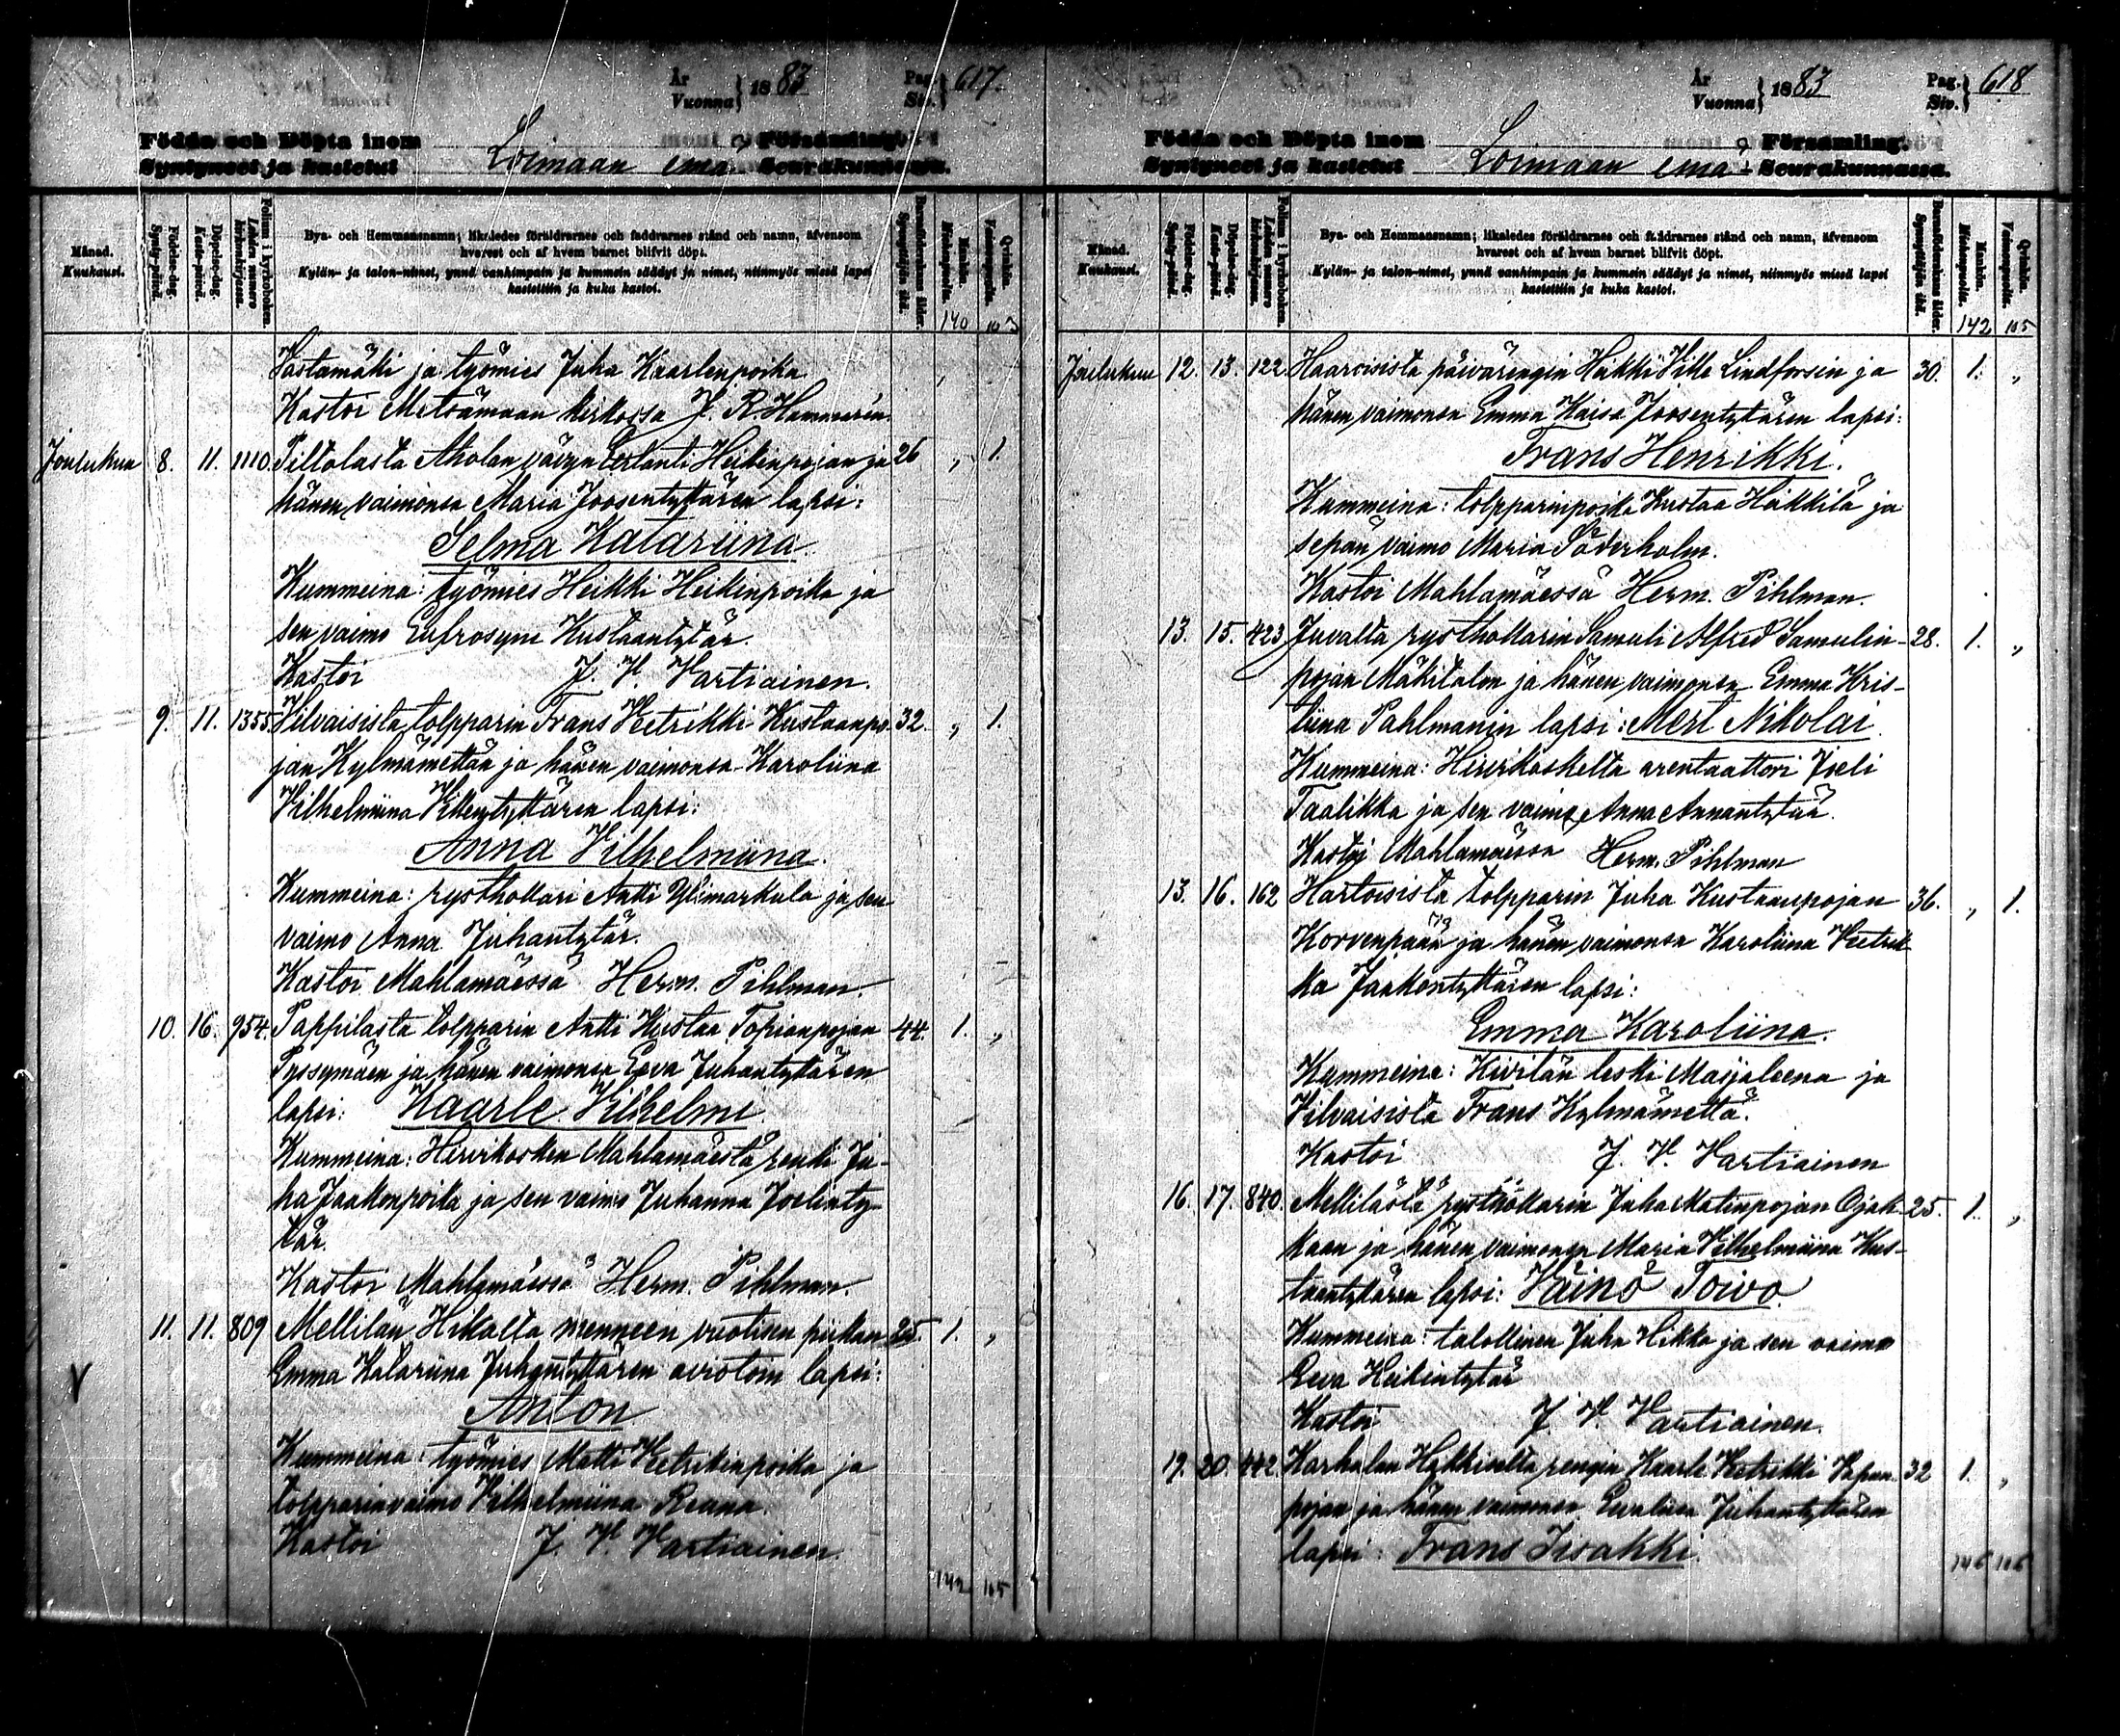 År
Vuonna } 1883
Pag.
Siv. } 617.
Födda och Döpta inom Församling.
Syntyneet ja kastetut Loimaan emä- Seurakunnassa.
Månad.
Kuukausi.
Födelse-dag.
Synty-päivä.
Döpelse-dag.
Kaste-päivä.
Folium i kyrkoboken.
Lehden numero kirkonkirjassa.
Bya- och Hemmansnamn; likaledes föräldrarnes och faddrarnes stånd och namn, äfvensom
hvarest och af hvem barnet blifvit döpt.
Kylän- ja talon-nimet, ynnä vanhimpain ja kummein säädyt ja nimet, niinmyös missä lapsi
kastettiin ja kuka kastoi.
Barnaföderskans ålder.
Synnyttäjän ikä.
Mankön.
Miehenpuolia.
Qvinkön.
Vaimonpuolia.
140 103
Vastamäki ja työmies Juha Kaarlenpoika
Kastoi Metsämaan kirkossa J. R. Hammarin.
Joulukuu 8. 11. 1110. Piltolasta Aholan vävyn Erlanti Heikinpojan ja 26 „ 1.
hänen vaimonsa Maria Joosentyttären lapsi:
Selma Katariina.
Kummeina: työmies Heikki Heikinpoika ja
sen vaimo Eufrosyne Kustaantytär.
Kastoi J. V. Vartiainen.
9. 11. 1355. Vilvaisista tolpparin Frans Vietrikki Kustaanpo- 32. „ 1.
jan Kylmämettän ja hänen vaimonsa Karoliina
Vilhelmiina Villentyttären lapsi:
Anna Vilhelmiina.
Kummeina: rysthollari Antti Ylimarkula ja sen
vaimo Anna Juhantytär.
Kastoi Mahlamäessä Herm. Pihlman.
10. 16. 954. Pappilasta tolpparin Antti Kustaa Topianpojan 44. 1. „
Pyssymäen ja hänen vaimonsa Eeva Juhantyttären
lapsi: Kaarle Vilhelmi.
Kummeina: Hirvikosken Mahlamäestä renki Ju-
ha Jaakonpoika ja sen vaimo Juhanna Joelinty-
tär.
Kastoi Mahlamäessä Herm. Pihlman.
11. 11. 809 Mellilän Hikalta menneen vuotisen piikan 25. 1. „
Emma Katariina Juhantyttären aviotoin lapsi:
Anton
Kummeina: työmies Matti Vietrikinpoika ja
tolpparinvaimo Vilhelmiina Raana.
Kastoi J. V. Vartiainen
142 105
År
Vuonna } 1883
Pag.
Siv. } 618
Födda och Döpta inom Församling.
Syntyneet ja kastetut Loimaan emä- Seurakunnassa.
Månad.
Kuukausi.
Födelse-dag.
Synty-päivä.
Döpelse-dag.
Kaste-päivä.
Folium i kyrkoboken.
Lehden numero kirkonkirjassa.
Bya- och Hemmansnamn; likaledes föräldrarnes och faddrarnes stånd och namn, äfvensom
hvarest och af hvem barnet blifvit döpt.
Kylän- ja talon-nimet, ynnä vanhimpain ja kummein säädyt ja nimet, niinmyös missä lapsi
kastettiin ja kuka kastoi.
Barnaföderskans ålder.
Synnyttäjän ikä.
Mankön.
Miehenpuolia.
Qvinkön.
Vaimonpuolia.
142 105
Joulukuu 12. 13. 122 Haaroisista päivärengin Heikki Ville Lindforsin ja 30. 1. „
hänen vaimonsa Emma Kaisa Joosentytären lapsi:
Frans Henrikki.
Kummeina: tolpparinpoika Kustaa Heikkilä ja
sepän vaimo Maria Söderholm.
Kastoi Mahlamäessä Herm. Pihlman.
13. 15. 423 Juvalta rysthollarin Samuli Alfred Samulin- 28. 1. „
pojan Mäkitalon ja hänen vaimonsa Emma Kris-
tiina Pahlmanin lapsi: Mert Nikolai.
Kummeina: Hirvikoskelta arentaattori Joeli
Taalikka ja sen vaimo Anna Annantytär.
Kastoi Mahlamäessä Herm. Pihlman
13. 16. 162 Hartoisista tolpparin Juha Kustaanpojan 36. „ 1.
Korvenpään ja hänen vaimonsa Karoliina Vietrik-
ka Jaakontyttären lapsi:
Emma Karoliina.
Kummeina: Kivilän leski Maijaleena ja
Vilvaisista Frans Kylmämettä.
Kastoi J. V. Vartiainen
16. 17. 840. Mellilästä rysthollarin Juha Matinpojan Ojak- 25. 1. „
kaan ja hänen vaimonsa Maria Vilhelmiina Kus-
taantytären lapsi: Väinö Toivo.
Kummeina: talollinen Juha Hikka ja sen vaimo
Eeva Heikintytär
Kastoi J. V. Vartiainen.
19. 20. 442 Karhulan rengin Kaarle Vietrikki 32 1. „
pojan ja hänen vaimonsa Evaliina Juhantyttären
lapsi: Frans Iisakki.
146 106